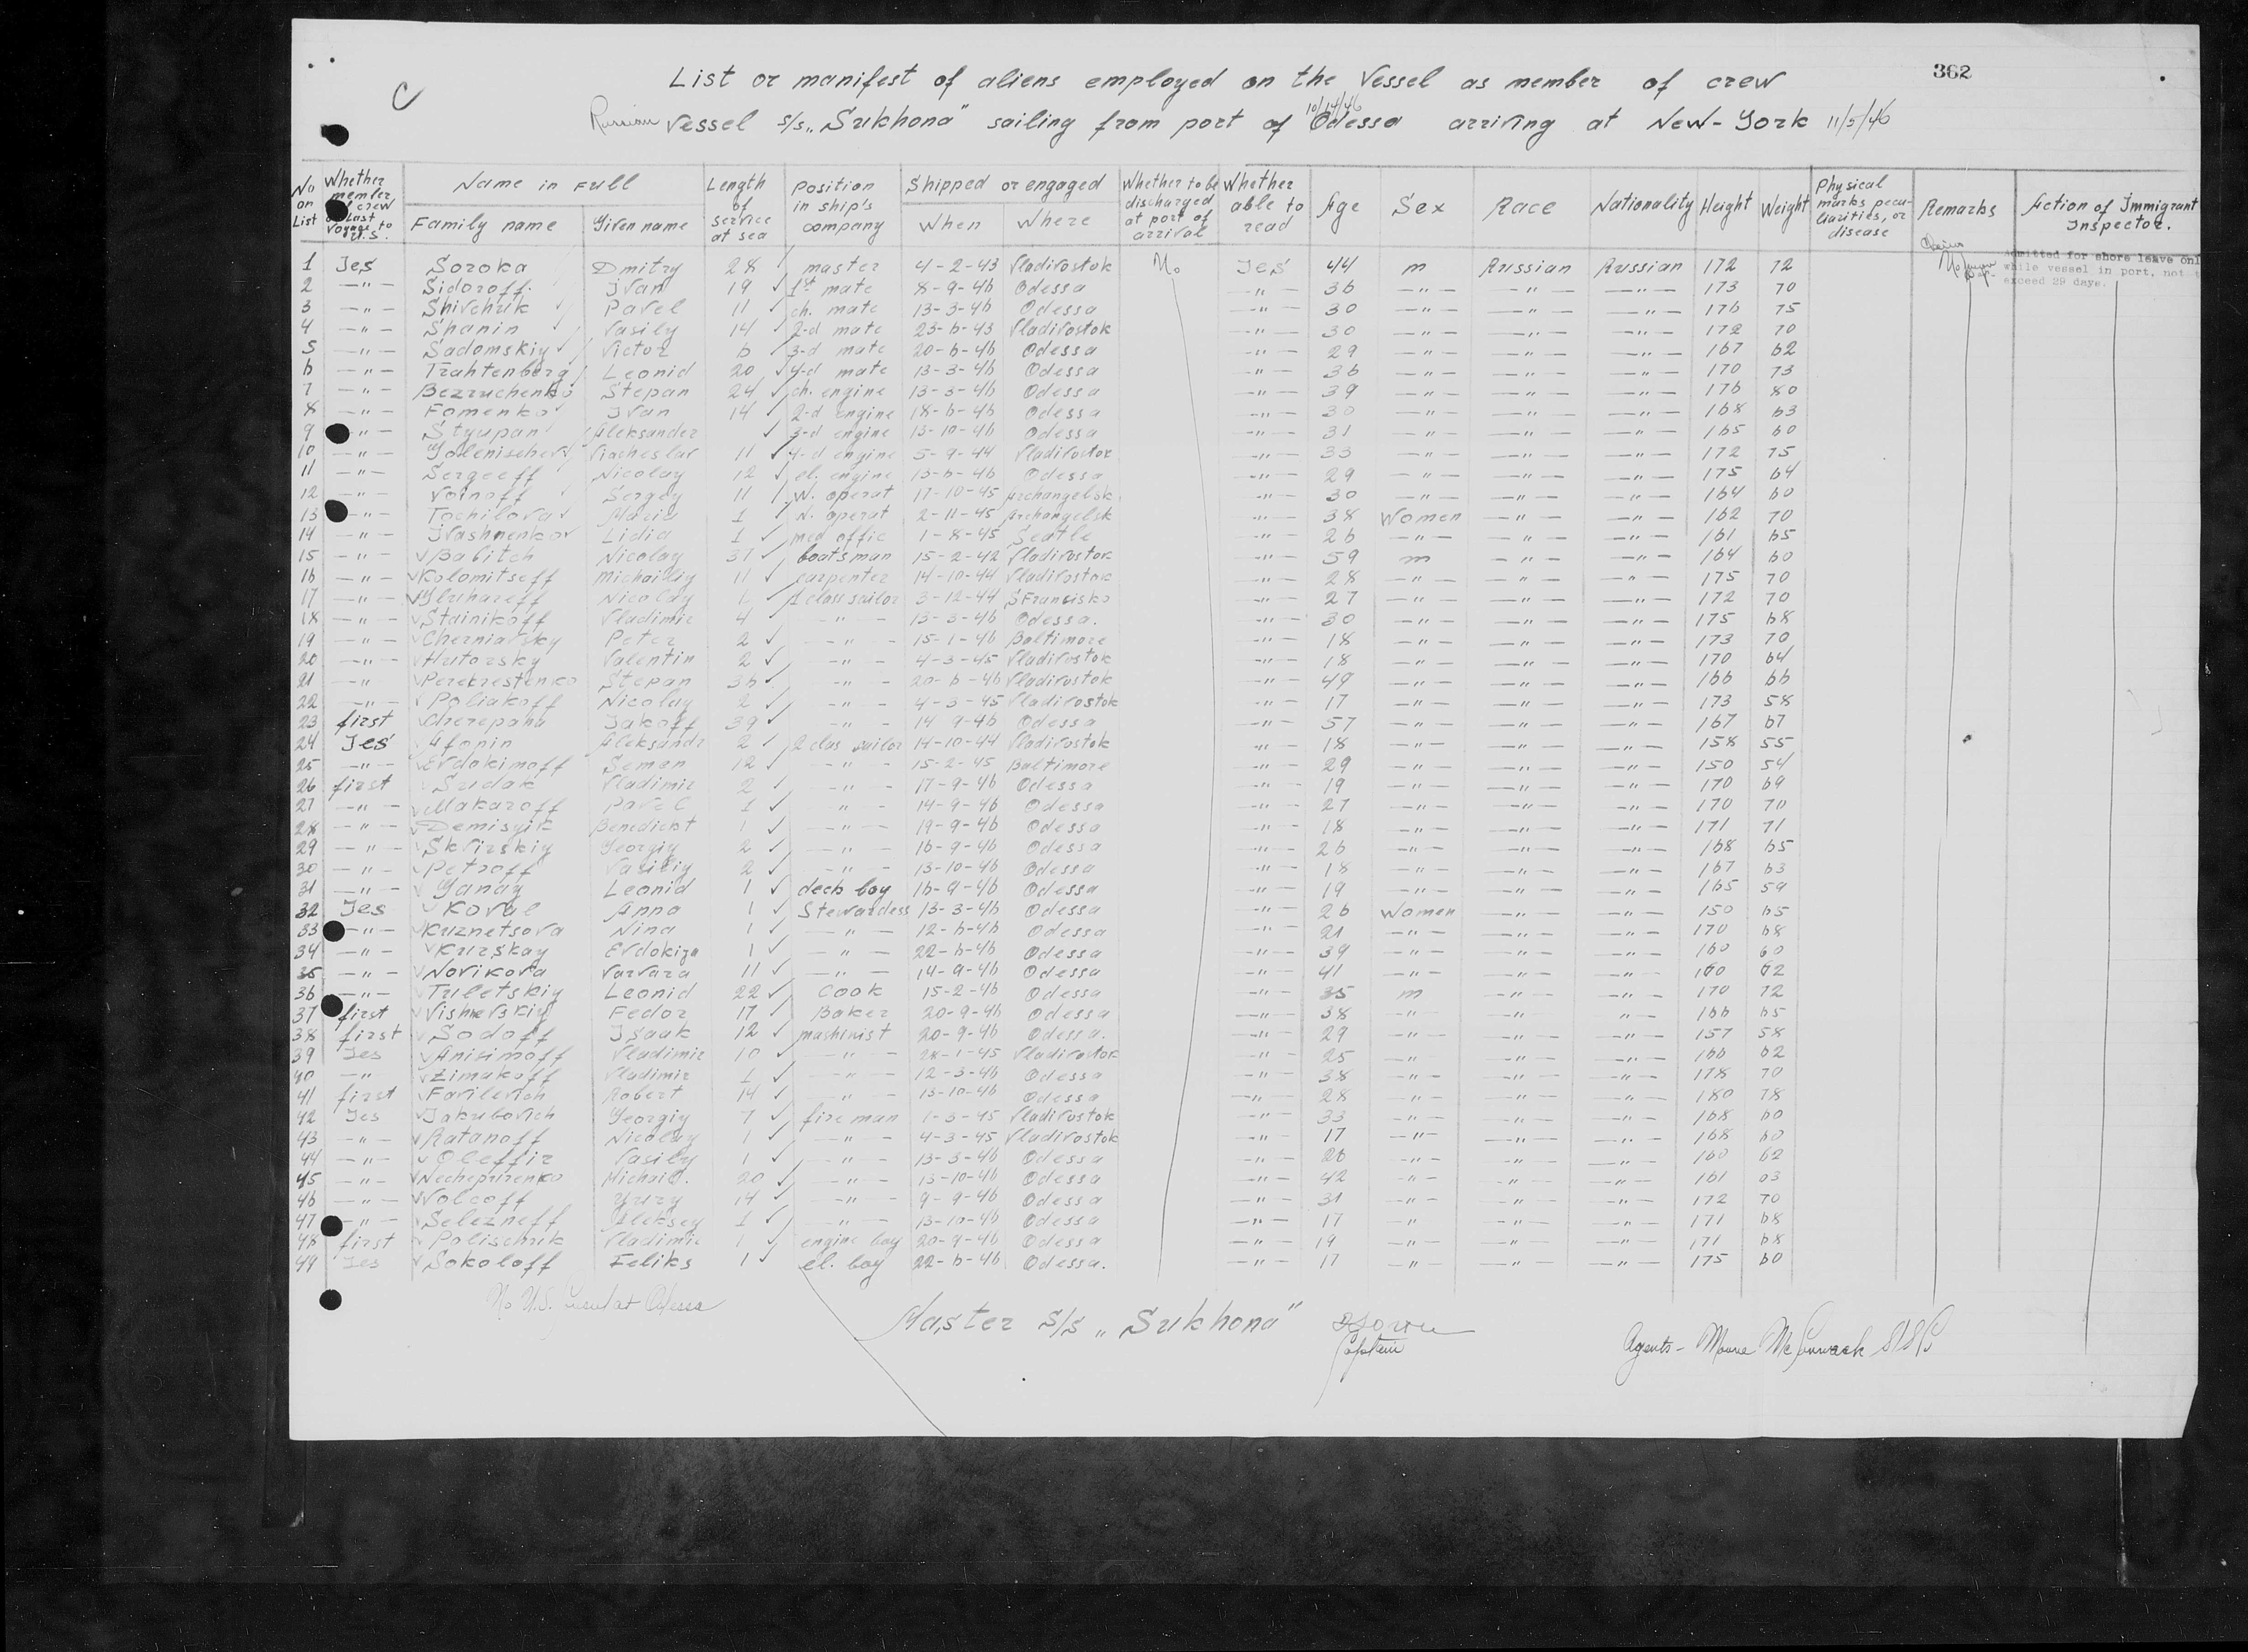 362
C
List or manifest of aliens employed on the Vessel as member of crew
Russian Vessel s/s „Sukhona" sailing from port of Odessa 10/14/46 arriving at New-York 11/5/46
No on List | Whether member of crew on Last Voyage to U.S. | Name in Full | Length of service at sea | Position in ship's company | Shipped or engaged | Whether to be discharged at port of arrival | Whether able to read | Age | Sex | Race | Nationality | Height | Weight | Physical marks pecu-liarities, or disease | Remarks | Action of Immigrant Inspector.
Family name | Given name | When | Where
1 Jes Soroka Dmitry 28 master 4-2-43 Vladivostok No Jes 44 m Russian Russian 172 72
Admitted for shore leave onl
while vessel in port, not t
exceed 29 days.
2 -"- Sidoroff Ivan 19 1st mate 8-9-46 Odessa -"- 36 -"- -"- -"- 173 70
3 -"- Shivchuk Pavel 11 ch. mate 13-3-46 Odessa -"- 30 -"- -"- -"- 176 75
4 -"- Shanin Vasily 14 2-d mate 23-6-43 Vladivostok -"- 30 -"- -"- -"- 172 70
5 -"- Sadomskiy Victor 6 3-d mate 20-6-46 Odessa -"- 29 -"- -"- -"- 167 62
6 -"- Trahtenberg Leonid 20 4-d mate 13-3-46 Odessa -"- 36 -"- -"- -"- 170 73
7 -"- Bezruchenko Stepan 24 ch. engine 13-3-46 Odessa -"- 39 -"- -"- -"- 176 80
8 -"- Fomenko Ivan 14 2-d engine 18-6-46 Odessa -"- 30 -"- -"- -"- 168 63
9 -"- Styupan Aleksander 3-d engine 13-10-46 Odessa -"- 31 -"- -"- -"- 165 60
10 -"- Viacheslav 11 4-d engine 5-9-44 Vladivostok -"- 33 -"- -"- -"- 172 75
11 -"- Sergeeff Nicolay 12 el. engine 13-6-46 Odessa -"- 29 -"- -"- -"- 175 64
12 -"- Voinoff Sergey 11 W. operat 17-10-45 Archangelsk -"- 30 -"- -"- -"- 164 60
13 -"- Tochilova Maria 1 W. operat 2-11-45 Archangelsk -"- 38 Women -"- -"- 162 70
14 -"- Ivashnenkov Lidia 1 med offic 1-8-45 Seatle -"- 26 -"- -"- -"- 161 65
15 -"- Babitch Nicolay 31 boatsman 15-2-42 Vladivostok -"- 59 m -"- -"- 164 60
16 -"- Kolomitseff Michailiy 11 carpenter 14-10-44 Vladivostok -"- 28 -"- -"- -"- 175 70
17 -"- Gluhareff Nicolay 1 class sailor 3-12-44 SFransisko -"- 27 -"- -"- -"- 172 70
18 -"- Stainikoff Vladimir 4 -"- 13-3-46 Odessa. -"- 30 -"- -"- -"- 175 68
19 -"- Cherniavsky Peter 2 -"- 15-1-46 Baltimore -"- 18 -"- -"- -"- 173 70
20 -"- Hutorsky Valentin 2 -"- 4-3-45 Vladivostok -"- 18 -"- -"- -"- 170 64
21 -"- Perekrestenko Stepan 36 -"- 20-6-46 Vladivostok -"- 49 -"- -"- -"- 166 66
22 -"- Poliakoff Nicolay 2 -"- 4-3-45 Vladivostok -"- 17 -"- -"- -"- 173 58
23 first Cherepaha Jakoff 39 -"- 14-9-46 Odessa -"- 57 -"- -"- -"- 167 67
24 Jes Afonin Aleksandr 2 2 clas sailor 14-10-44 Vladivostok -"- 18 -"- -"- -"- 158 55
25 -"- Evdokimoff Semen 12 -"- 15-2-45 Baltimore -"- 29 -"- -"- -"- 150 54
26 first Sudak Vladimir 2 -"- 17-9-46 Odessa -"- 19 -"- -"- -"- 170 69
27 -"- Makaroff Pavel 1 -"- 14-9-46 Odessa -"- 27 -"- -"- -"- 170 70
28 -"- Demisyik Benedickt 1 -"- 19-9-46 Odessa -"- 18 -"- -"- -"- 171 71
29 -"- Skvirskiy Georgiy 2 -"- 16-9-46 Odessa -"- 26 -"- -"- -"- 168 65
30 -"- Petroff Vasiliy 2 -"- 13-10-46 Odessa -"- 18 -"- -"- -"- 167 63
31 -"- Ganay Leonid 1 deck boy 16-9-46 Odessa -"- 19 -"- -"- -"- 165 59
32 Jes Koval Anna 1 Stewardess 13-3-46 Odessa -"- 26 Women -"- -"- 150 65
33 -"- Kuznetsova Nina 1 -"- 12-6-46 Odessa -"- 21 -"- -"- -"- 170 68
34 -"- Kurskay Evdokiya 1 -"- 22-6-46 Odessa -"- 39 -"- -"- -"- 160 60
35 -"- Novikova Varvara 11 -"- 14-9-46 Odessa -"- 41 -"- -"- -"- 160 62
36 -"- Tuletskiy Leonid 22 Cook 15-2-46 Odessa -"- 35 m -"- -"- 170 72
37 first Vishnevskiy Fedor 17 Baker 20-9-46 Odessa -"- 38 -"- -"- -"- 166 65
38 first Sodoff Isaak 12 mashinist 20-9-46 Odessa. -"- 29 -"- -"- -"- 157 58
39 Jes Anisimoff Vladimir 10 -"- 28-1-45 Vladivostok -"- 25 -"- -"- -"- 166 62
40 -"- Zimakoff Vladimir 1 -"- 12-3-46 Odessa -"- 38 -"- -"- -"- 178 70
41 first Favilevich Robert 14 -"- 13-10-46 Odessa -"- 28 -"- -"- -"- 180 78
42 Jes Jakubovich Georgiy 7 fire man 1-3-45 Vladivostok -"- 33 -"- -"- -"- 168 60
43 -"- Ratanoff Nicolay 1 -"- 4-3-45 Vladivostok -"- 17 -"- -"- -"- 168 60
44 -"- Oleffir Vasily 1 -"- 13-3-46 Odessa -"- 26 -"- -"- -"- 160 62
45 -"- Nechepurenko Michail. 20 -"- 13-10-46 Odessa -"- 42 -"- -"- -"- 161 63
46 -"- Wolcoff Yury 14 -"- 9-9-46 Odessa -"- 31 -"- -"- -"- 172 70
47 -"-Selezneff Aleksey 1 -"- 13-10-46 Odessa -"- 17 -"- -"- -"- 171 68
48 first Polischuk Vladimir 1 engine boy 20-9-46 Odessa -"- 19 -"- -"- -"- 171 68
49 Jes Sokoloff Feliks 1 el. boy 22-6-46 Odessa. -"- 17 -"- -"- -"- 175 60
No U.S. Consul at Odessa
Master s/s „Sukhona"
Captain
Agents - Moore McCormack S/S Co